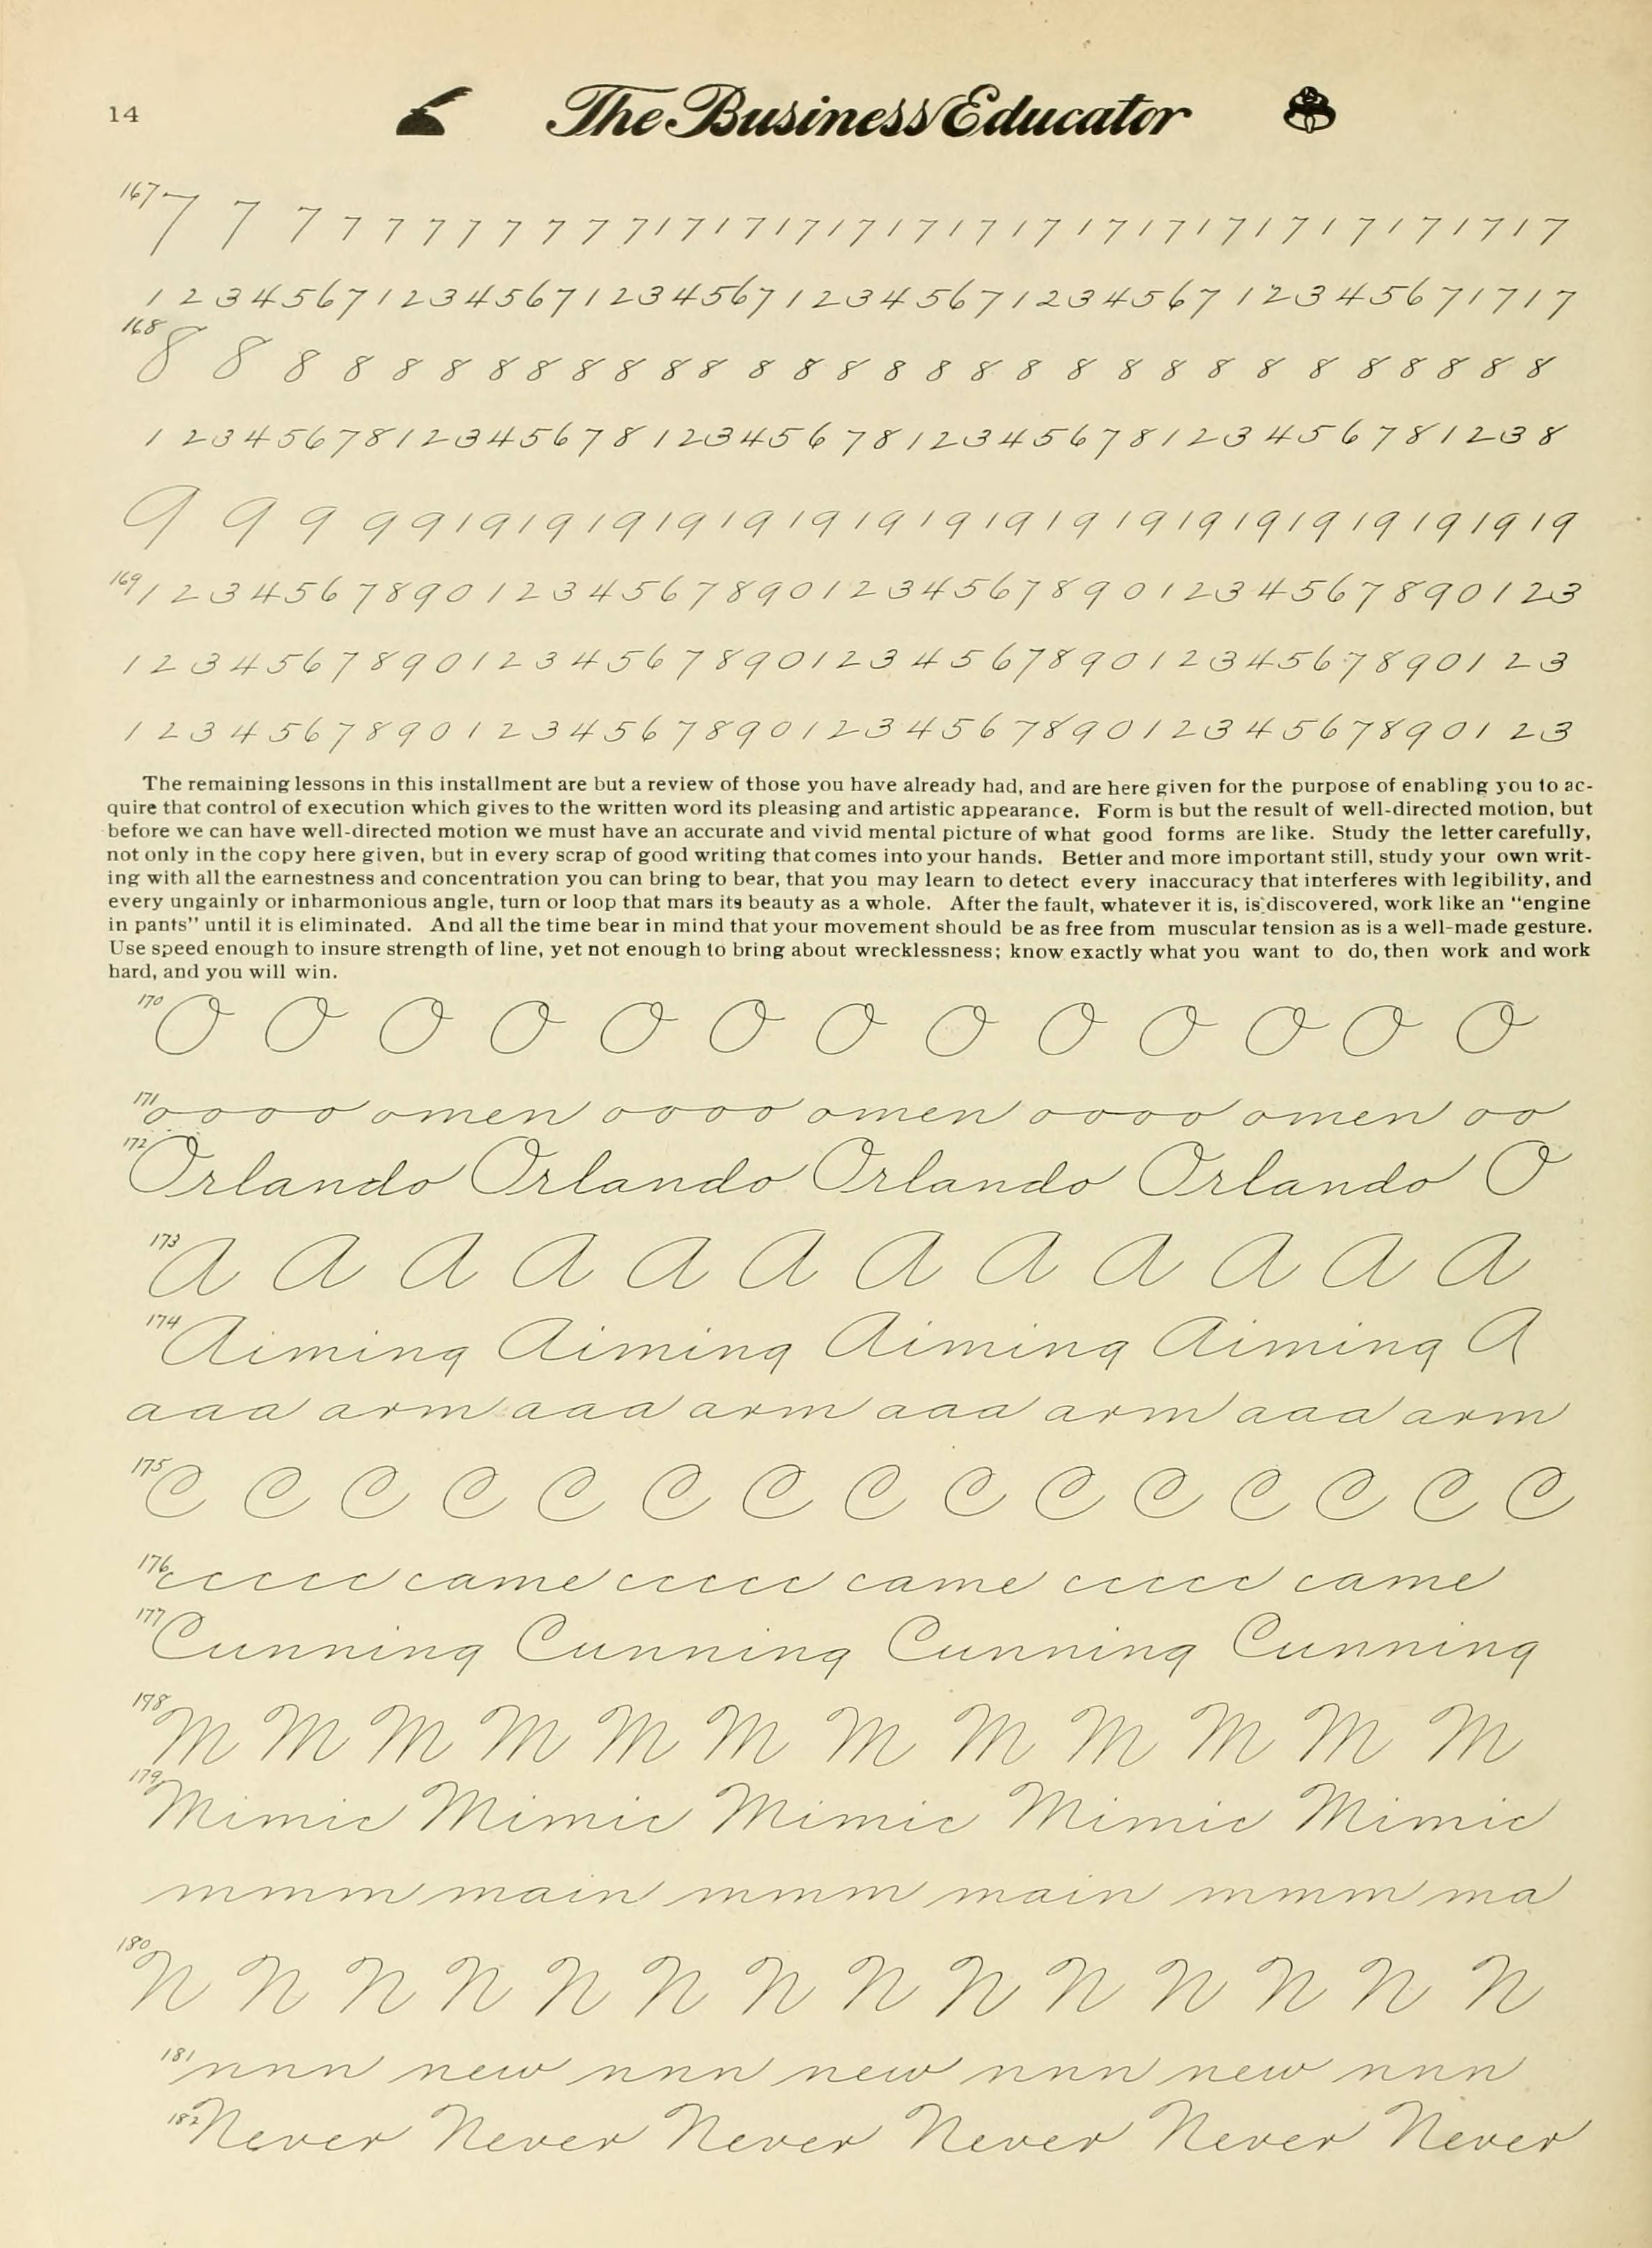 14 The Business Educator
167 7 7 7 7 7 7 7 7 7 7 7 1 7 1 7 1 7 1 7 1 7 1 7 1 7 1 7 1 7 1 7 1 7 1 7 1 7 1 7 1 7
1 2 3 4 5 6 7 1 2 3 4 5 6 7 1 2 3 4 5 6 7 1 2 3 4 5 6 7 1 2 3 4 5 6 7 1 2 3 4 5 6 7 1 7 1 7
168 8 8 8 8 8 8 8 8 8 8 8 8 8 8 8 8 8 8 8 8 8 8 8 8 8 8 8 8 8 8
1 2 3 4 5 6 7 8 1 2 3 4 5 6 7 8 1 2 3 4 5 6 7 8 1 2 3 4 5 6 7 8 1 2 3 4 5 6 7 8 1 2 3 8
9 9 9 9 9 1 9 1 9 1 9 1 9 1 9 1 9 1 9 1 9 1 9 1 9 1 9 1 9 1 9 1 9 1 9 1 9 1 9 1 9
169 1 2 3 4 5 6 7 8 9 0 1 2 3 4 5 6 7 8 9 0 1 2 3 4 5 6 7 8 9 0 1 2 3 4 5 6 7 8 9 0 1 2 3
1 2 3 4 5 6 7 8 9 0 1 2 3 4 5 6 7 8 9 0 1 2 3 4 5 6 7 8 9 0 1 2 3 4 5 6 7 8 9 0 1 2 3
1 2 3 4 5 6 7 8 9 0 1 2 3 4 5 6 7 8 9 0 1 2 3 4 5 6 7 8 9 0 1 2 3 4 5 6 7 8 9 0 1 2 3
The remaining lessons in this installment are but a review of those you have already had, and are here given for the purpose of enabling you to ac-
quire that control of execution which gives to the written word its pleasing and artistic appearance. Form is but the result of well-directed motion, but
before we can have well-directed motion we must have an accurate and vivid mental picture of what good forms are like. Study the letter carefully,
not only in the copy here given, but in every scrap of good writing that comes into your hands. Better and more important still, study your own writ-
ing with all the earnestness and concentration you can bring to bear, that you may learn to detect every inaccuracy that interferes with legibility, and
every ungainly or inharmonious angle, turn or loop that mars its beauty as a whole. After the fault, whatever it is, is discovered, work like an "engine
in pants" until it is eliminated. And all the time bear in mind that your movement should be as free from muscular tension as is a well-made gesture.
Use speed enough to insure strength of line, yet not enough to bring about wrecklessness; know exactly what you want to do, then work and work
hard, and you will win.
170 O O O O O O O O O O O O O
171 oooo omen oooo omen oooo omen oo
172 Orlando Orlando Orlando Orlando O
173 A A A A A A A A A A A A
174 Aiming Aiming Aiming Aiming A
aaa arm aaa arm aaa arm aaa arm
175 C C C C C C C C C C C C C C C
176 ccccc came ccccc came ccccc came
177 Cunning Cunning Cunning Cunning
178 M M M M M M M M M M M M
179 Mimic Mimic Mimic Mimic Mimic
mmm main mmm main mmm ma
180 N N N N N N N N N N N N N N
181 nnn new nnn new nnn new nnn
182 Never Never Never Never Never Never